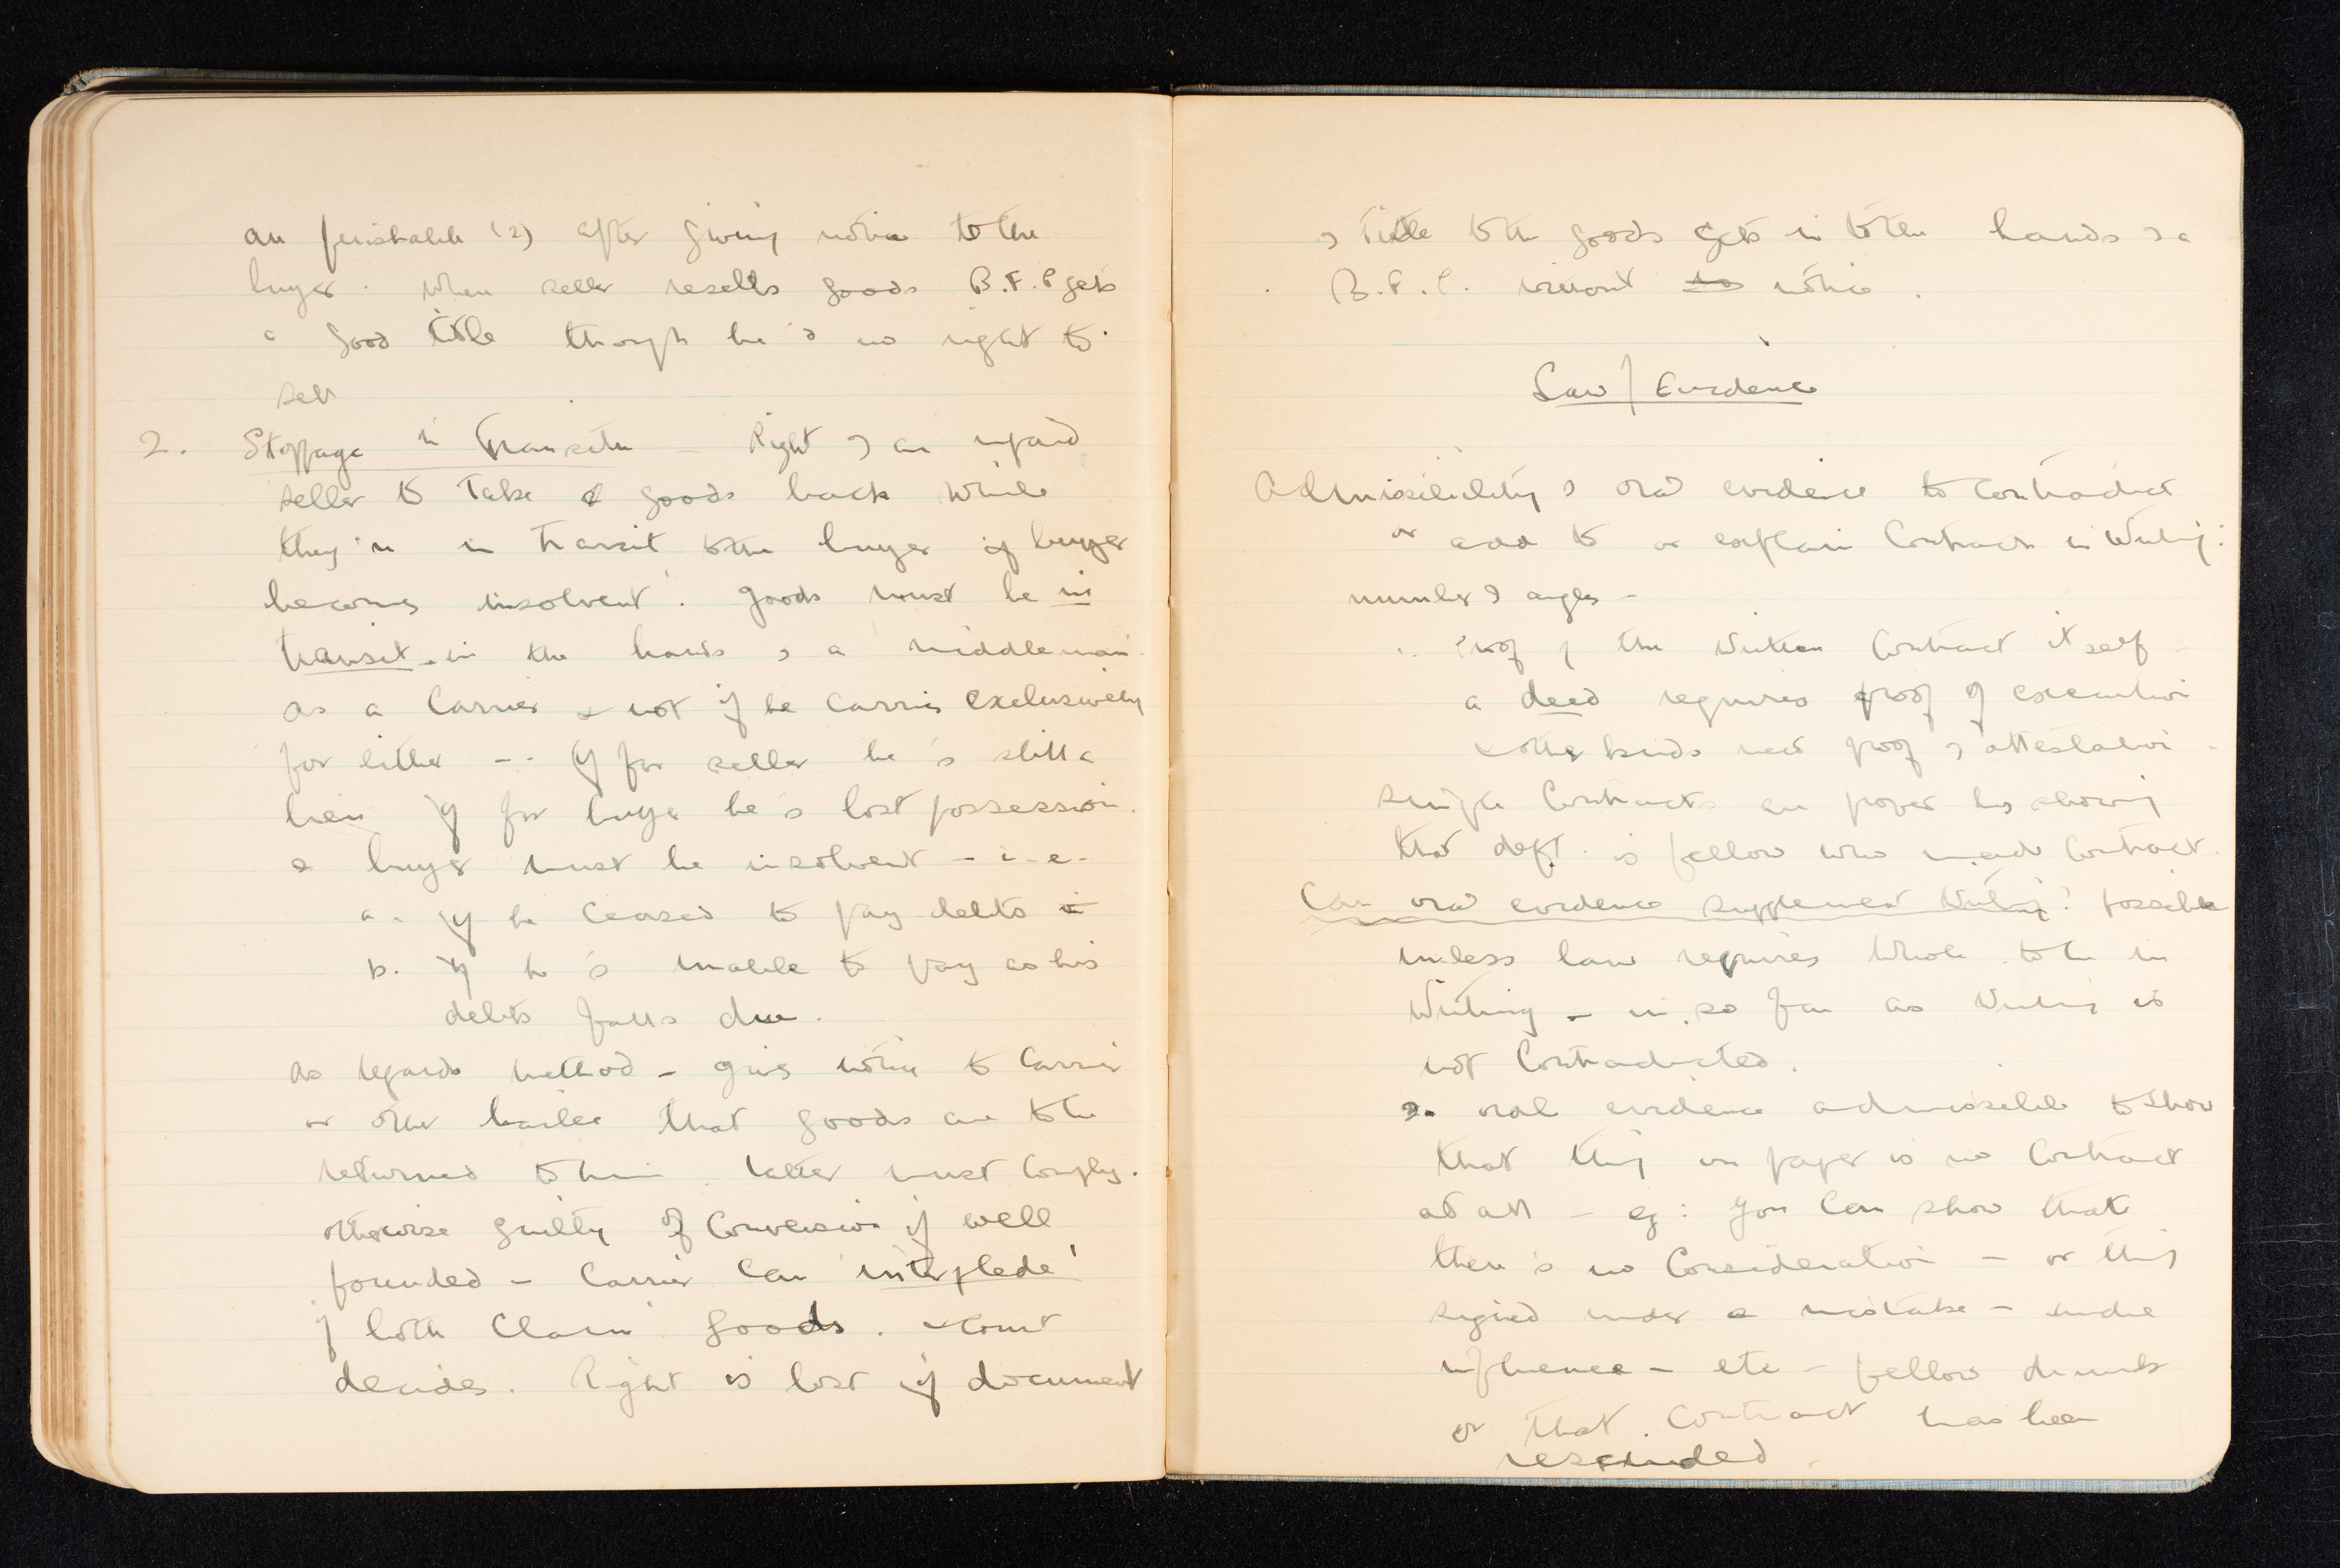 are perishable (2) after giving notice to the
buyer. When seller resells goods B.F.P gets
a good title though he's no right to
sell
2. Stoppage in Transitu – Right of an unpaid
seller to take goods back while
they're in transit to the buyer if buyer
becomes insolvent. goods must be in
transit - in the hands of a middleman
as a Carrier & not if he carries exclusively
for either -- If for seller he's still a
lien If for buyer he's lost possession.
2 buyer must be insolvent - i-e-
a. If he ceased to pay debts
b. If he's unable to pay as his
debts falls due.
As regards method - gives notice to carrier
or other bailee that goods are to be
returned to him. latter must comply.
otherwise guilty of Conversion if well
founded - Carrier can 'interplede'
if both claim goods. & court
decides. Right is lost if document
of Title to the goods gets in to the hands of a
B.F.P. without notice.
Law of Evidence
Admissibility of oral evidence to contradict
or add to or explain Contracts in Writing:
number of angles -
1. Proof of the Written Contract itself -
a deed requires proof of execution
& other kinds need proof of attestation -
Simple Contracts are proper by showing
that deft. is fellow who made Contract.
Can oral evidence supplement Writing? possible
unless law requires whole to be in
Writing - in so far as Writing is
not Contradicted.
2. oral evidence admissible to show
that thing on paper is no Contract
at all - eg: you can show that
there's no Consideration - or thing
signed under a mistake - undue
influence - etc - fellow drunk
or that Contract has been
rescinded.